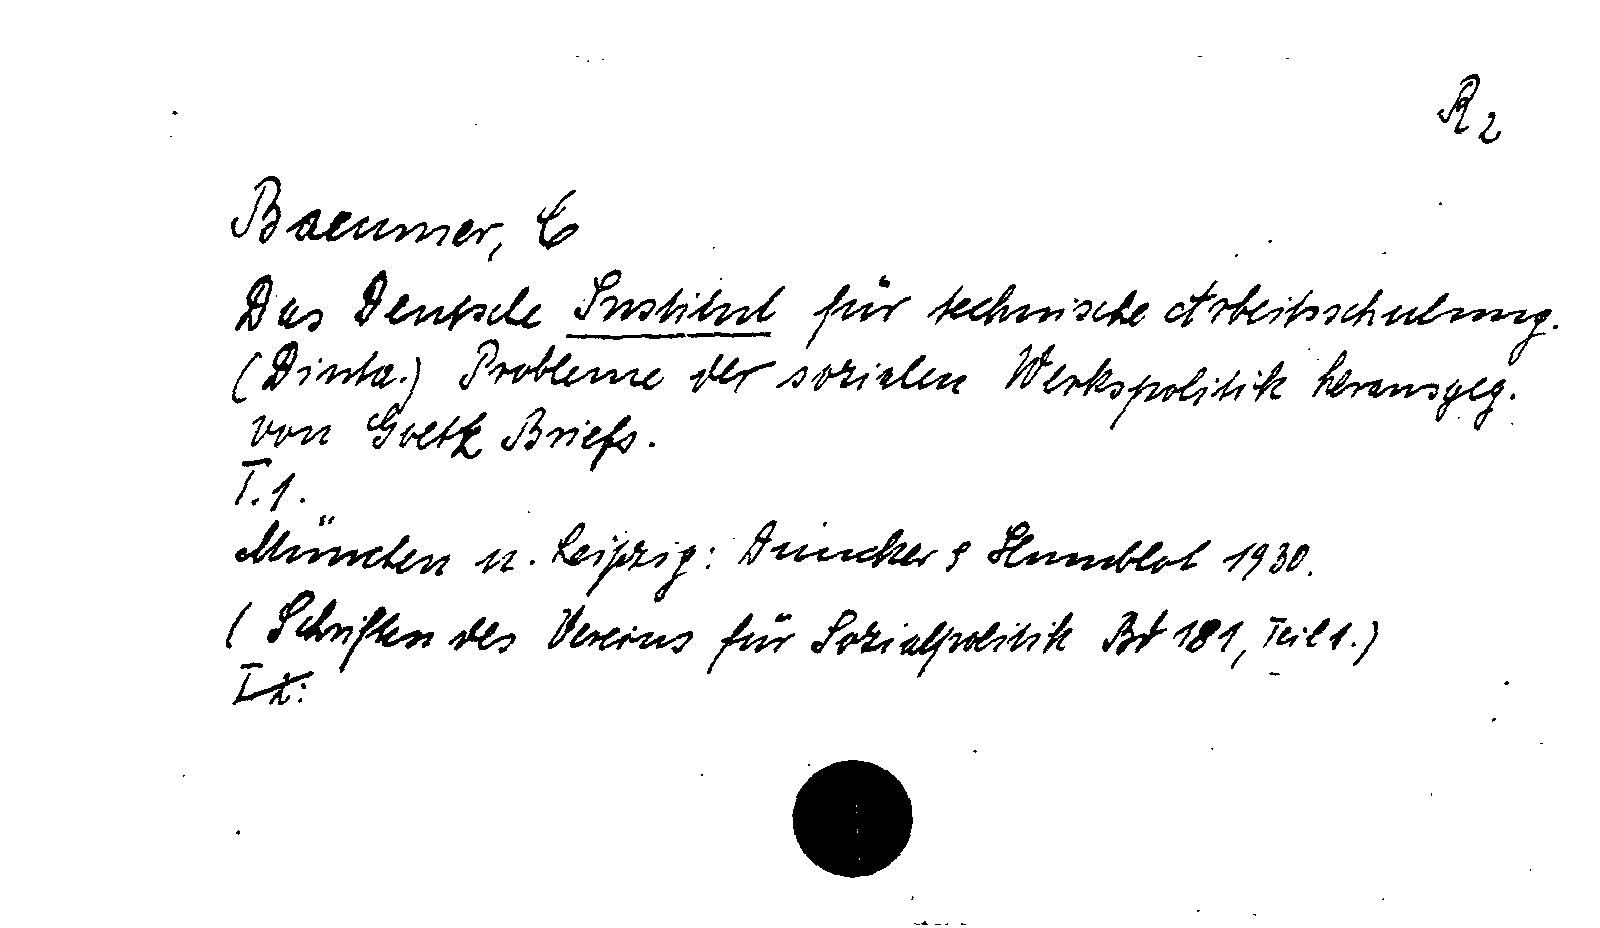 R2
Baeumer, C
Das Deutsche Institut für technische Arbeitsschulung.
(Dinta.) Probleme der sozialen Werkspolitik herausgeg.
von Goetz Briefs.
T.1.
München u. Leipzig: Duncker & Humblot 1930.
(Schriften des Vereins für Sozialpolitik Bd 181, Teil 1.)